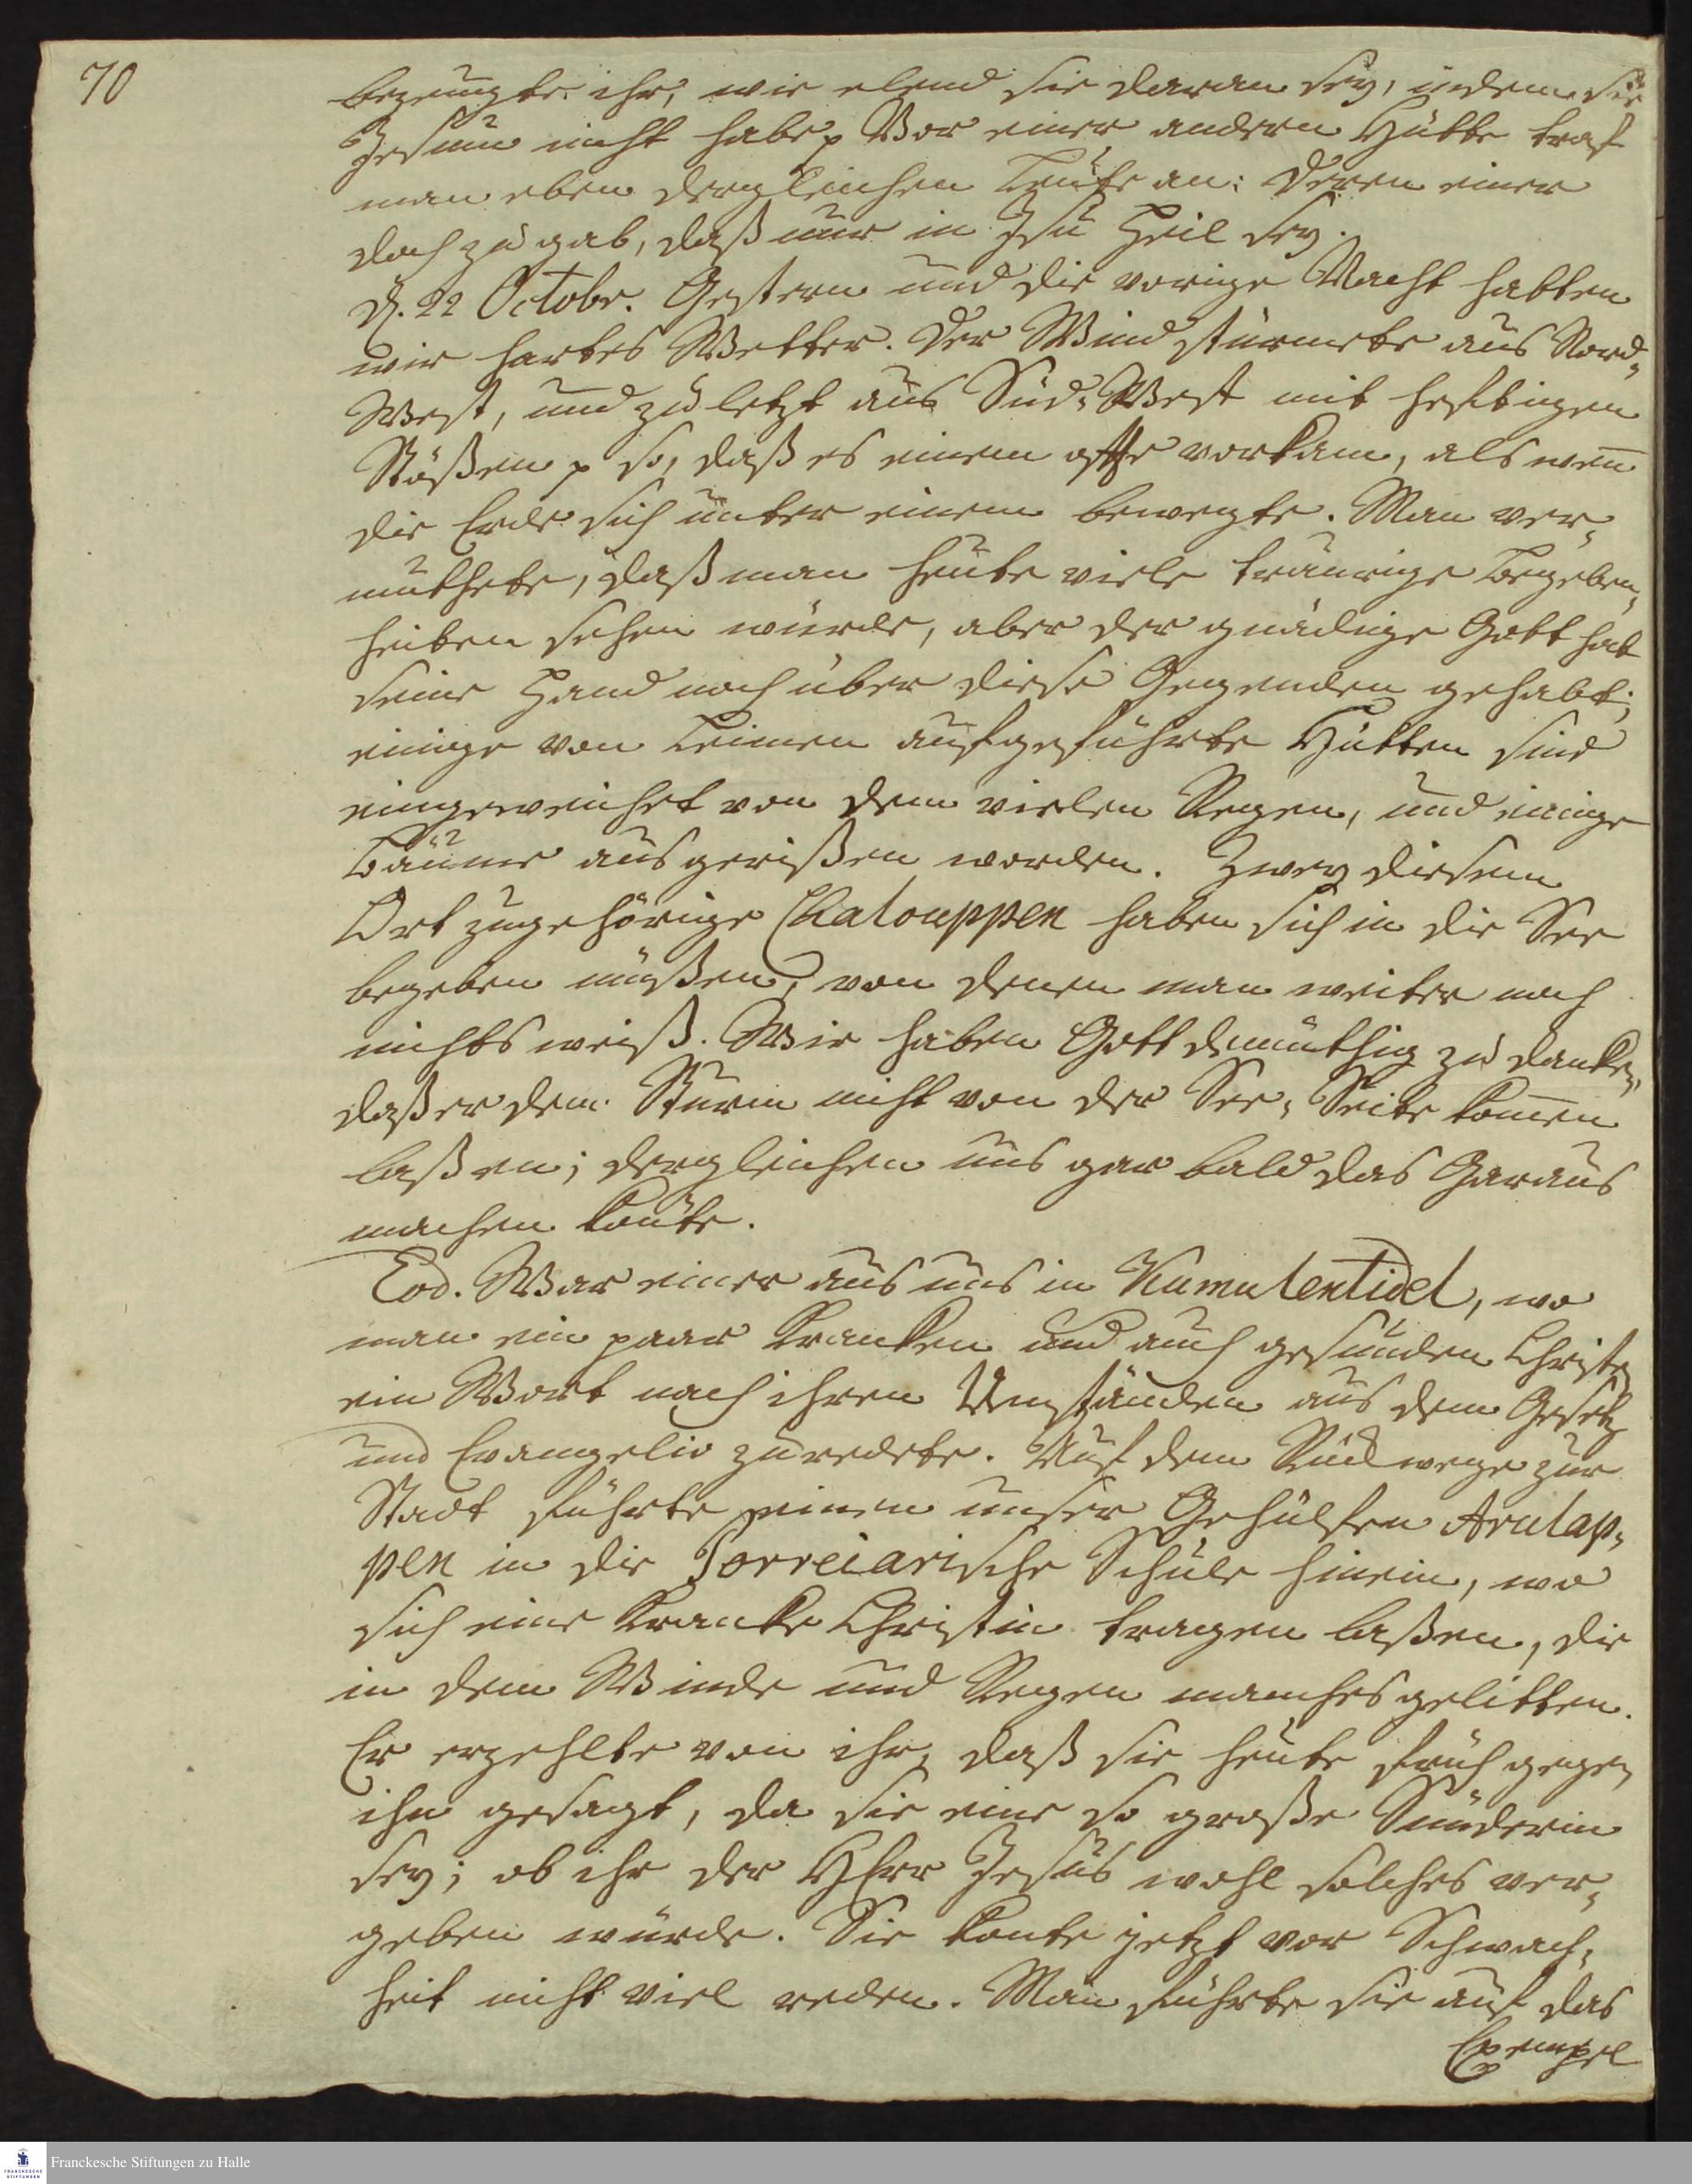 70
bezeugte ihr, wie elend sie daran sey, indem sie
Jesum nicht habe p Vor einer andern Hütte traf
man eben dergleichen Leute an: deren einer
doch zugab, daß nur in Jesu Heil sey.
d. 22 Octobr. Gestern und die vorige Nacht hatten
wir hartes Wetter. Der Wind stürmete aus Nord-
West, und zuletzt aus Süd-West mit heftigen
Stößen p so, daß es einem vorkam, als wen̄
die Erde sich unter einem bewegte. Man ver-
muthete, daß man heute viele traurige Begeben-
heiten sehen würde, aber der gnädige Gott hat
seine Hand noch über diese Gegenden gehabt;
einige von Leimen aufgeführte Hütten sind
eingeweichet von dem vielen Regen, und einige
Bäume ausgerißen worden. Zwey diesem
Ort zugehörige Chalouppen haben sich in die See
begeben müßen, von denen man weiter noch
nichts weiß. Wir haben Gott demüthig zu danken,
daß er den Sturm nicht von der See-Seite kom̄en
laßen; dergleichen uns gar bald das Garaus
machen könte.
Eod. War einer aus uns in Kumulentidel, wo
man ein paar Kranken und auch gesunden Christen
ein Wort nach ihren Umständen aus dem Gesetz
und Evangelio zuredete. Auf dem Rückwege zur
Stadt führte einen unser Gehülfen Arulap-
pen in die Porreiarische Schule hinein, wo
sich eine kranke Christin tragen laßen, die
in dem Winde und Regen manches gelitten.
Er erzehlte von ihr, daß sie heute früh gegen
ihn gesagt, da sie eine so große Sünderin
sey; ob ihr der HErr Jesus wohl solches ver-
geben würde. Sie konte jetzt vor Schwach-
heit nicht viel reden. Man führte sie auf das
Exempel
Franckesche Stiftungen zu Halle
FRANCKESCHE
STIFTUNGEN